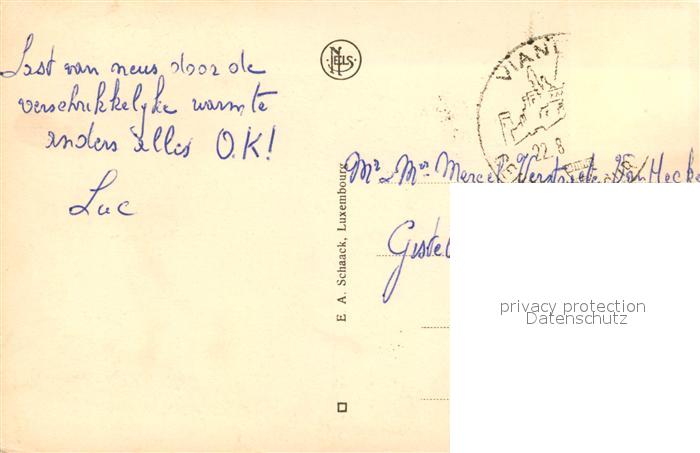 Last van neus door de
verschrikkelyke warmte
anders alles O.K!
Luc
NELS
E. A. Schaack, Luxembourg
VIAND
22.8
Mr & Mrs Marcel Verstraete Van Hecke
Gistel
privacy protection
Datenschutz